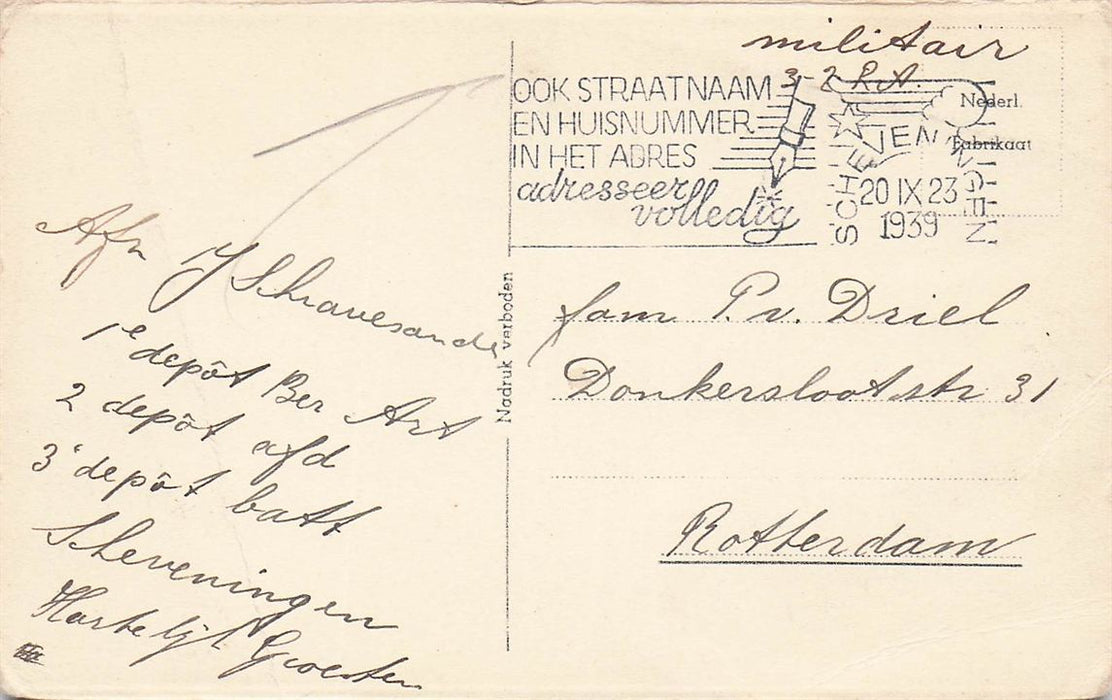 militair
3-2 R.A.
OOK STRAATNAAM
EN HUISNUMMER
IN HET ADRES
adresseer
volledig
SCHEVENINGEN
20 IX 23
1939
Nederl.
Fabrikaat
Afn IJ Schravesande
1e depôt Ber Art
2 depôt afd
3e depôt batt
Scheveningen
Hartelijk Groeten
Nadruk verboden
fam P. v. Driel
Donkerslootstr 31
Rotterdam